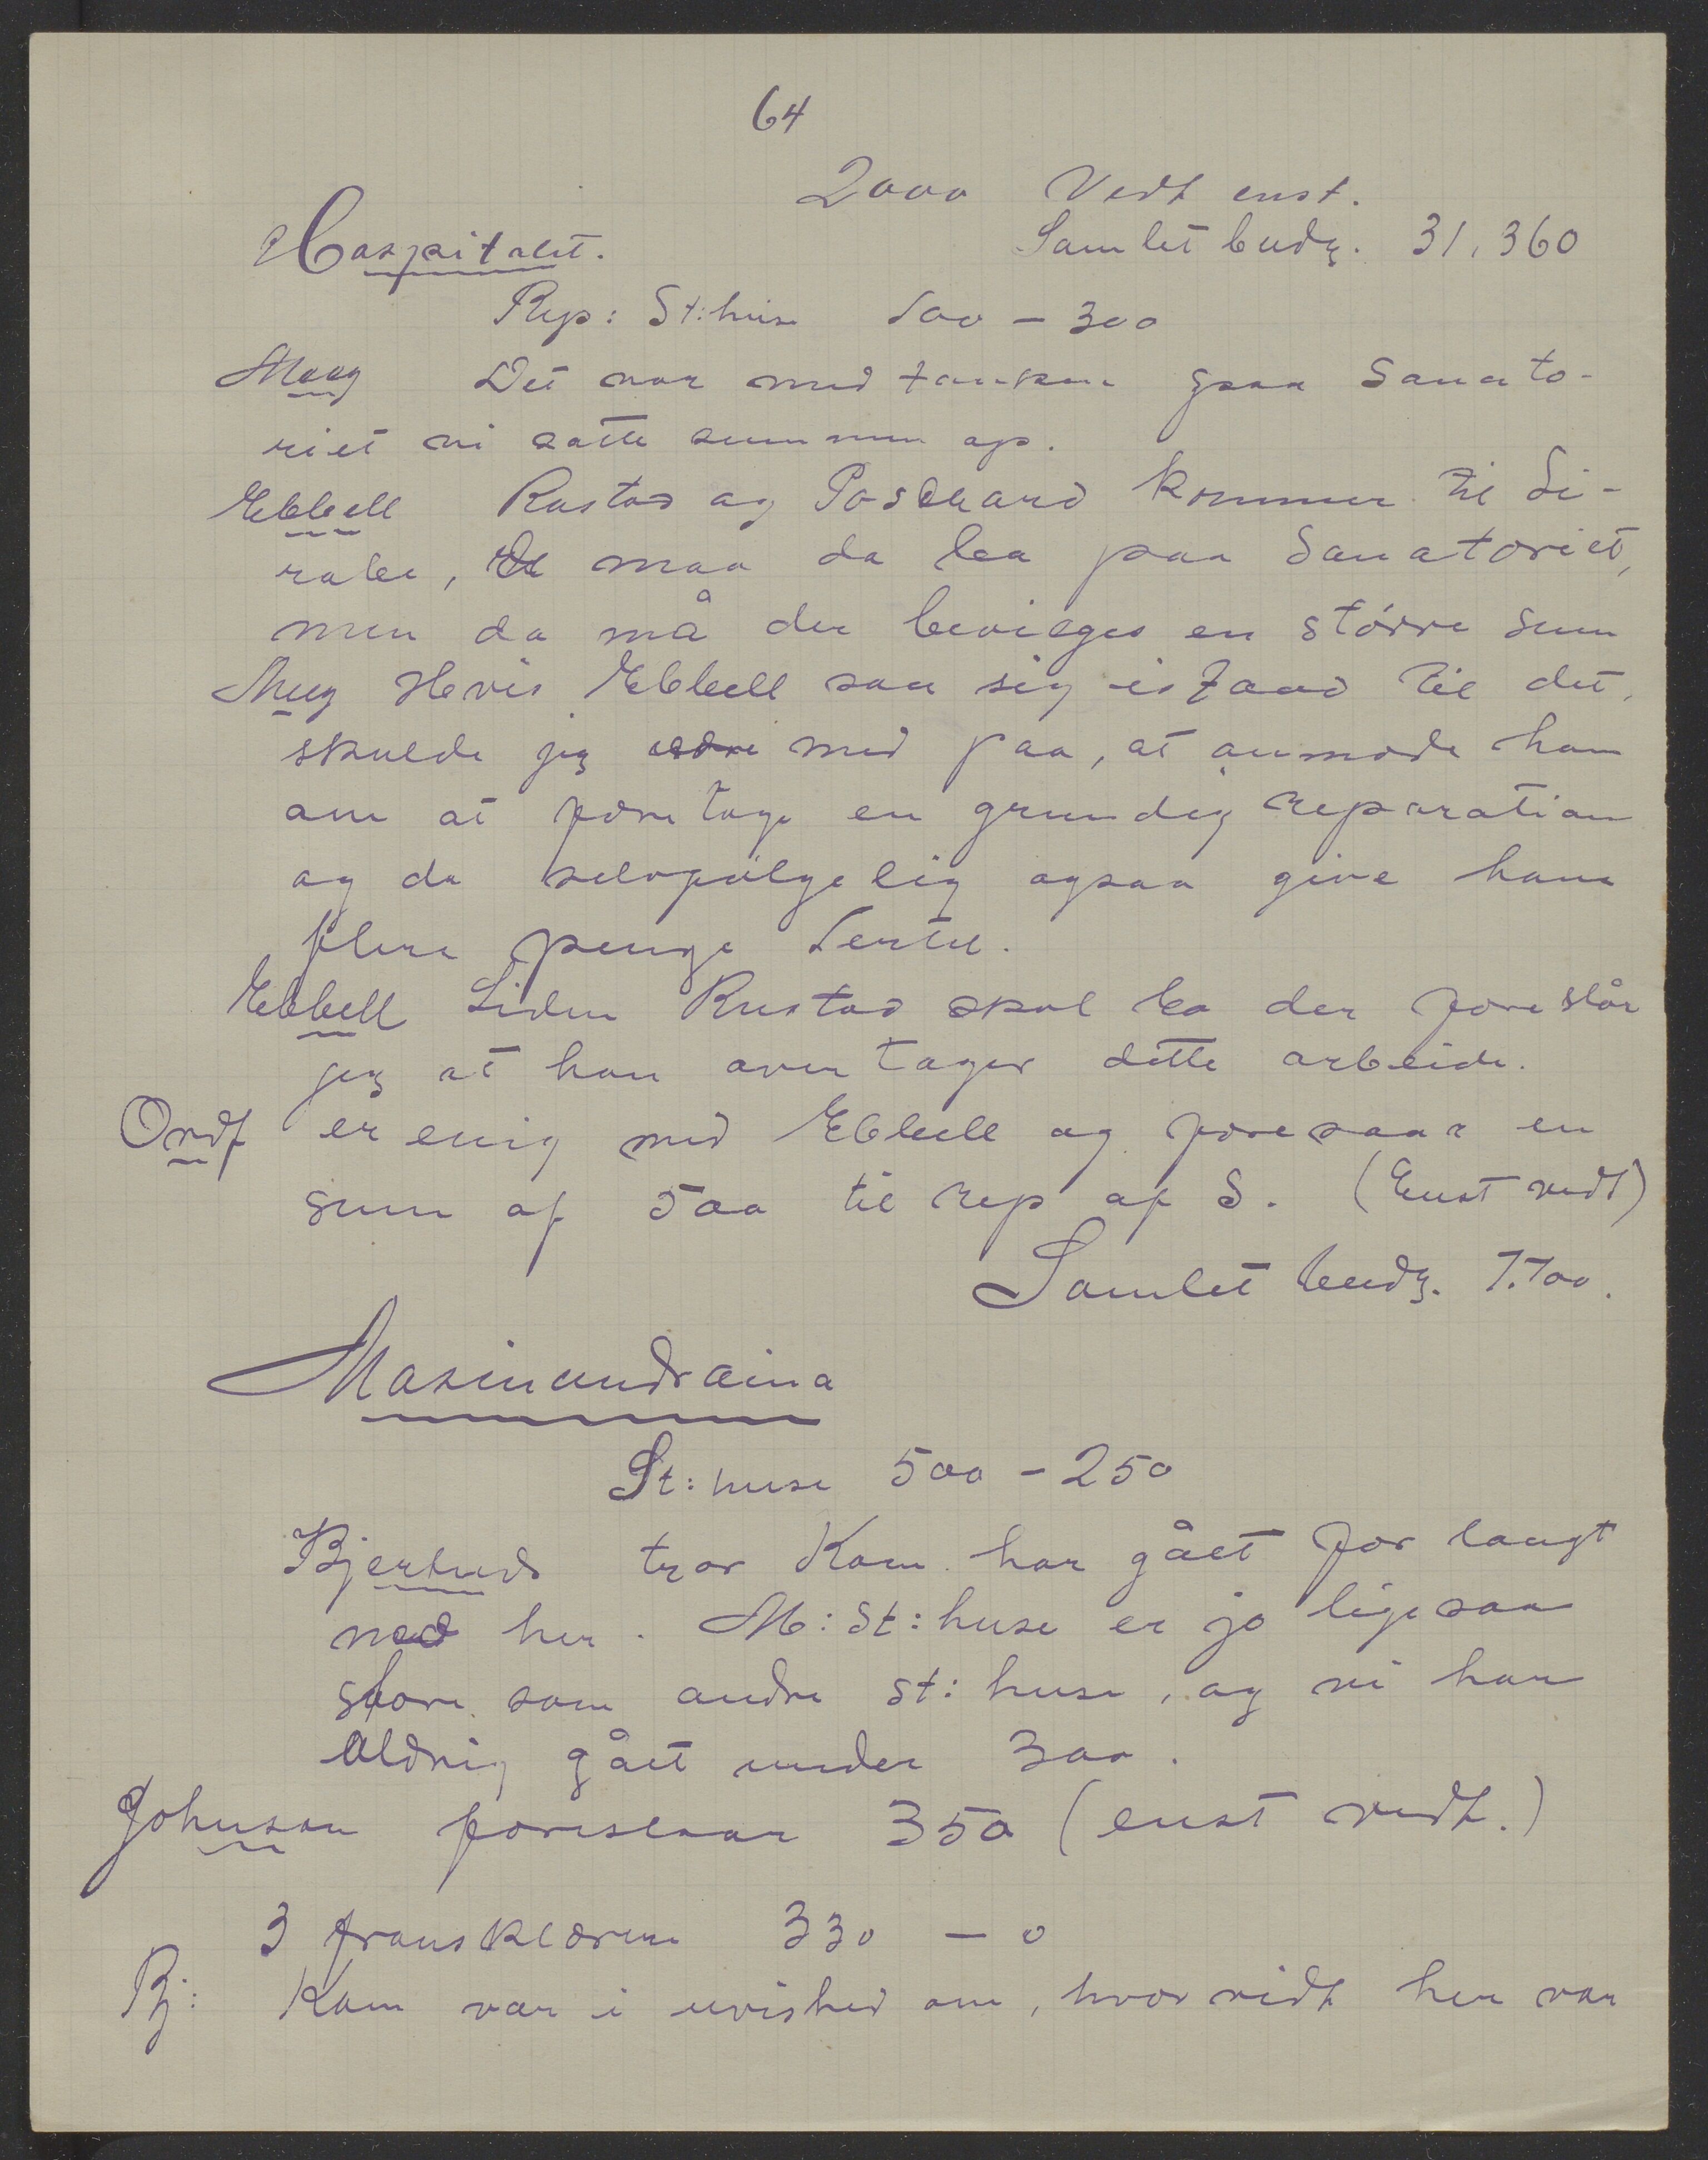 64
2000 Vedt enst.
Hospitalet. Samlet budg. 31,360
Rep: St:huse 500 – 300
Meeg Det var med tanken paa Sanato-
riet vi satte summen op.
Ebbell Rustad og Borchgrevink kommer til Si-
rabe, De maa da bo paa Sanatoriet,
men da må der bevilges en större sum
Meeg Hvis Ebbell saa sig istand til det,
skulde jeg være med paa, at anmode ham
om at foretage en grundig reparation
og da selvfölgelig ogsaa give ham
flere penge dertil.
Ebbell Siden Rustad skal bo der foreslår
jeg at han overtager dette arbeide.
Ordf er enig med Ebbell og foreslaar en
sum af 500 til rep af S. (Enst vedt)
Samlet budg. 7.700.
Masinandraina
St:huse 500 – 250
Bjertnæs tror Kom. har gået for langt
ned her. M:St:huse er jo ligesaa
store som andre st:huse, og vi har
Aldrig gået under 300.
Johnson foreslaar 350 (enst vedt.)
3 fransklærere 330 – 0
Bj: Kom var i uvished om, hvorvidt her var